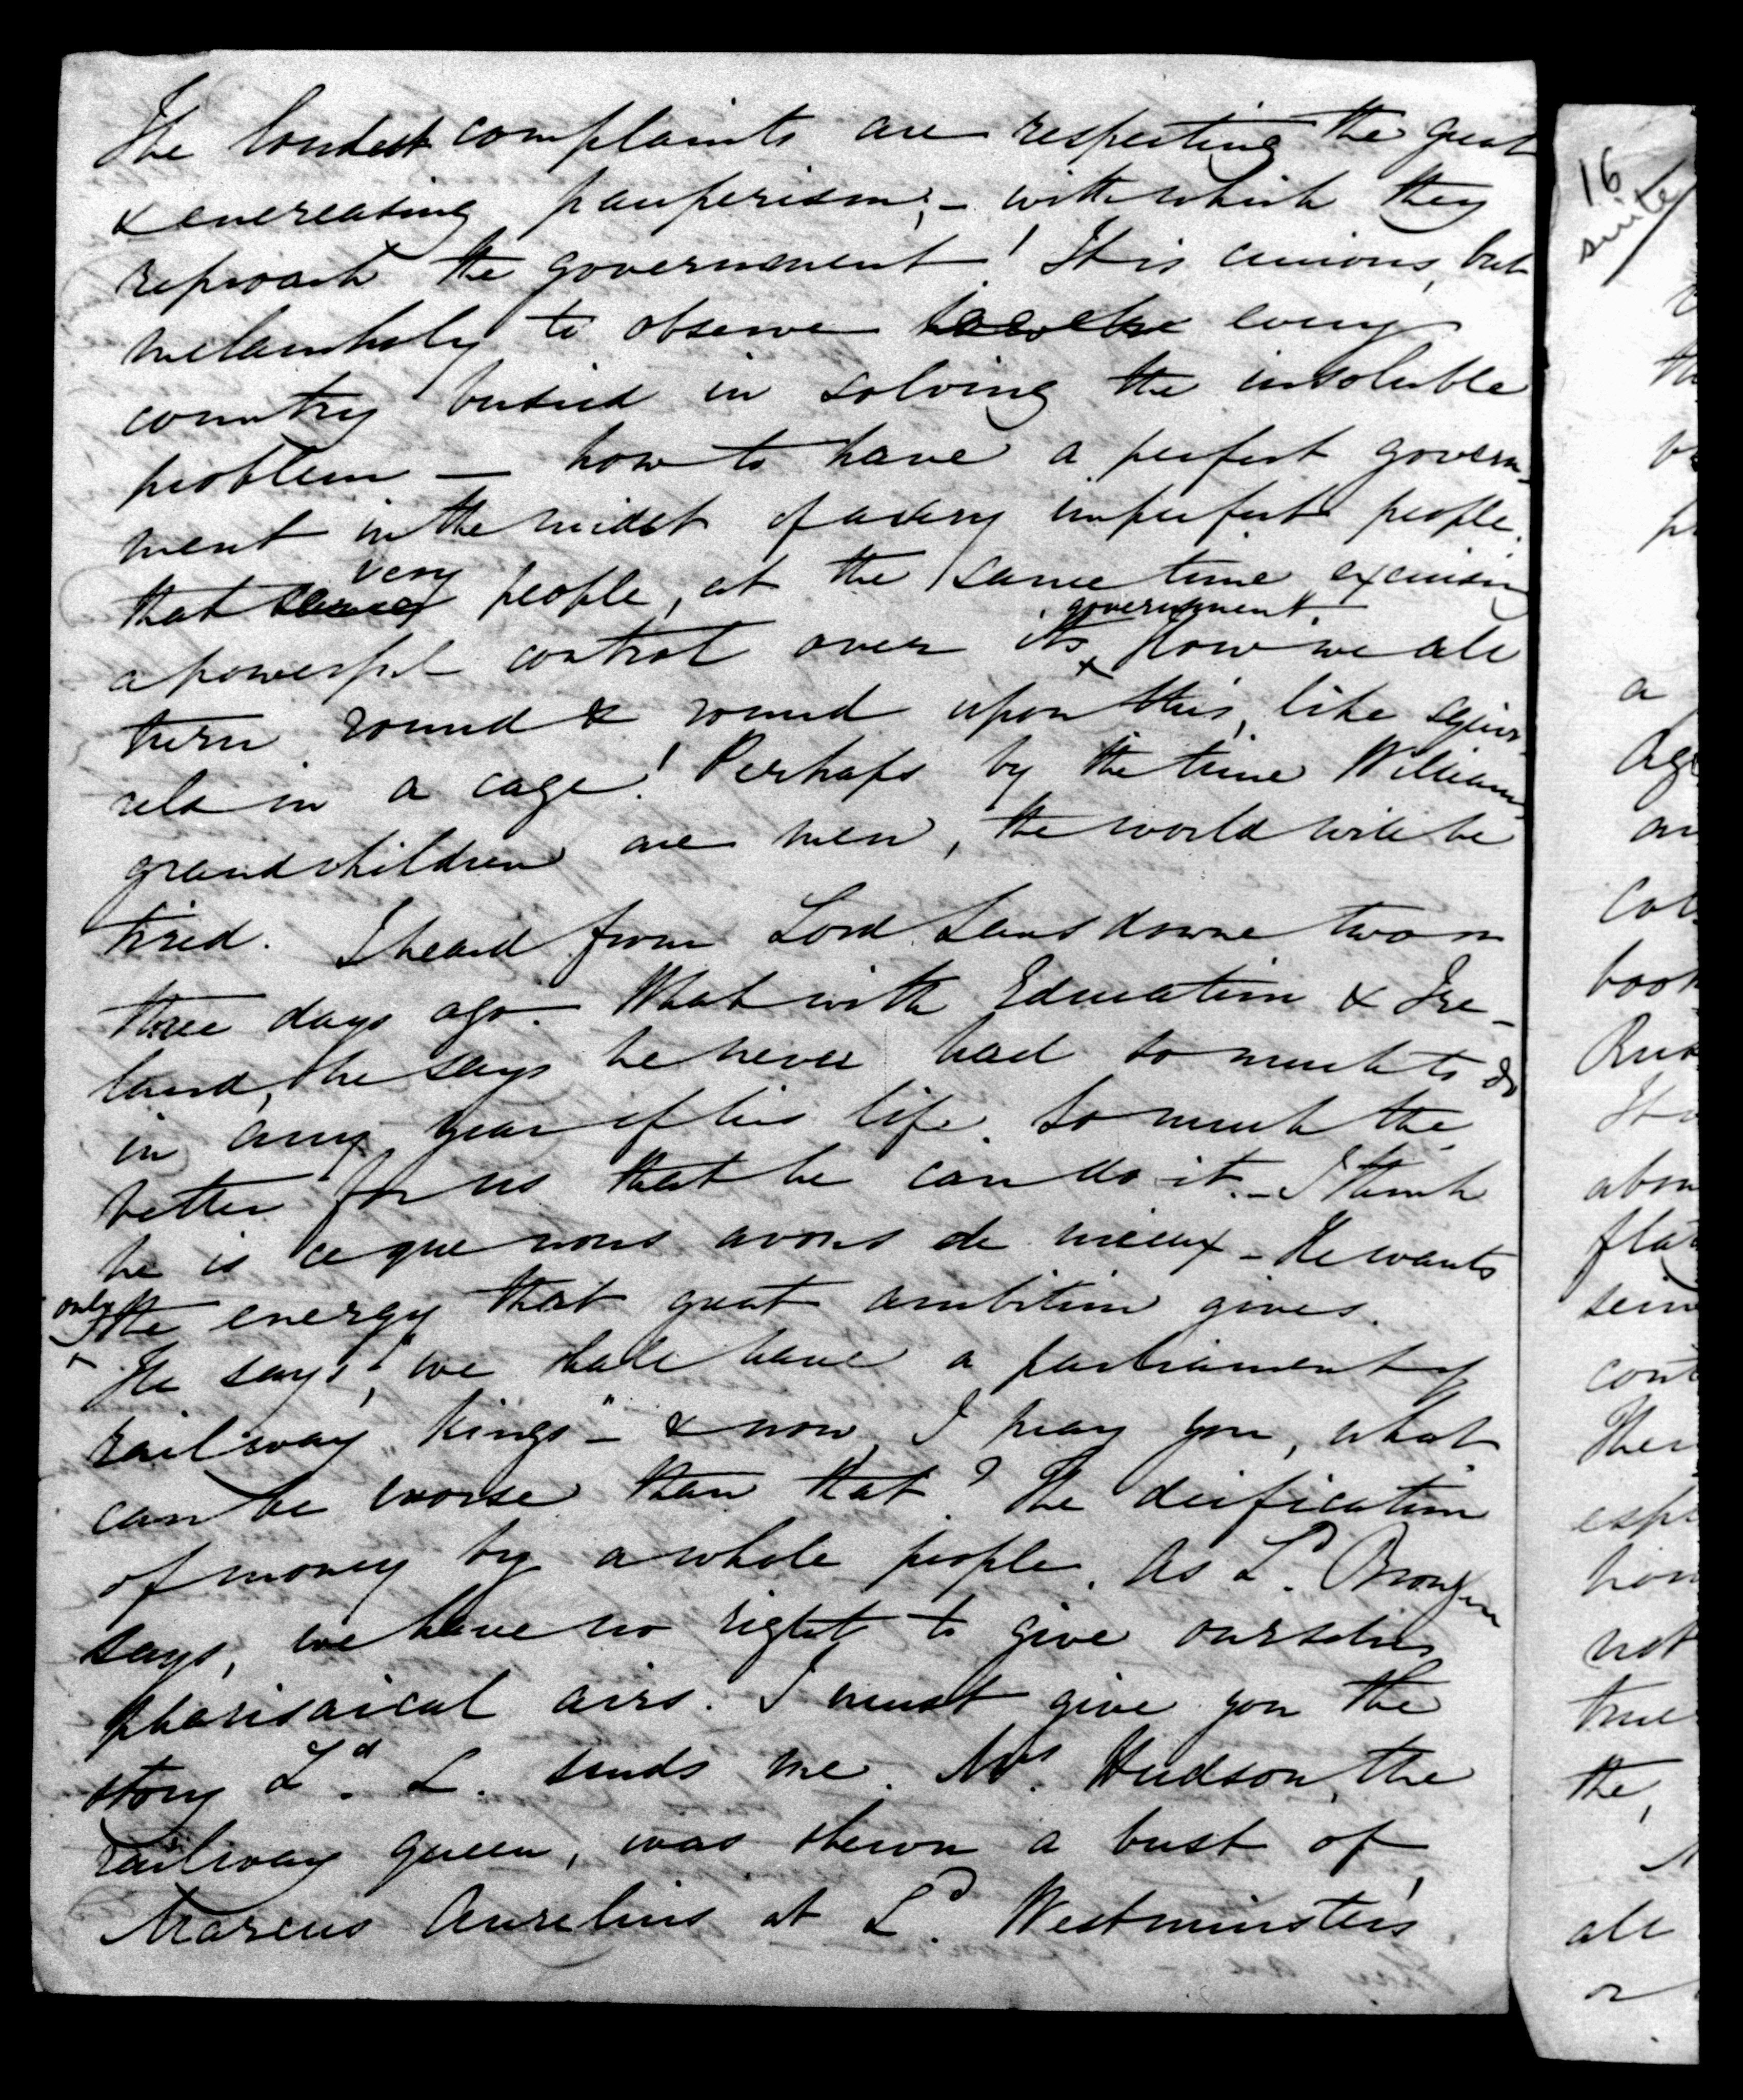 The loudest complaints are respecting the great
& encreasing pauperism, - with which they
reproach the government! It is curious, but
melancholy to observe every
country busied in solving the insoluble
problem — how to have a perfect govern-
ment in the midst of a very imperfect people,
that very people, at the same time exercising
a powerful control over its government. How we all
turn round & round upon this, like squir-
rels in a cage! Perhaps by the time William's
grandchildren are men, the world will be
tired. I heard from Lord Lansdowne two or
three days ago. What with Education & Ire-
land, he says he never had so much to do
in any year of his life. So much the
better for us that he can do it. - I think
he is ce que nous avons de mieux - He wants
only the energy that great ambition gives.
He says, "we shall have a parliament of
railway kings" - & now I pray you, what
can be worse than that? The deification
of money by a whole people. As Ld. Brougham
says, we have no right to give ourselves
pharisaical airs. I must give you the
story Ld. L. sends me. Mrs. Hudson, the
railway queen, was shewn a bust of
Marcus Aurelius at Ld. Westminster's,
16
suite
a
book
not
true
the,
all